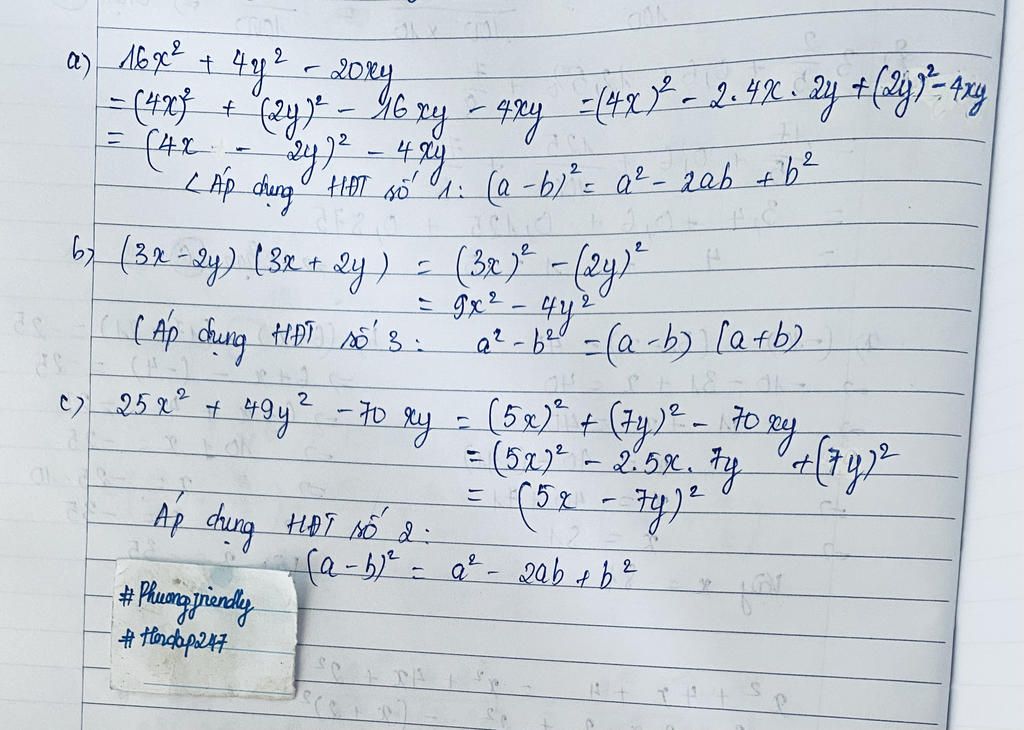 a) 16x² + 4y² - 20xy
= (4x)² + (2y)² - 16xy - 4xy = (4x)² - 2.4x.2y + (2y)² - 4xy
= (4x - 2y)² - 4xy
(Áp dụng HĐT số 1: (a-b)² = a² - 2ab + b²
b) (3x-2y) (3x+2y) = (3x)² - (2y)²
= 9x² - 4y²
(Áp dụng HĐT số 3: a² - b² = (a-b) (a+b)
c) 25x² + 49y² - 70xy = (5x)² + (7y)² - 70xy
= (5x)² - 2.5x.7y + (7y)²
= (5x - 7y)²
Áp dụng HĐT số 2:
(a-b)² = a² - 2ab + b²
#Phuongfriendly
#Hoidap247